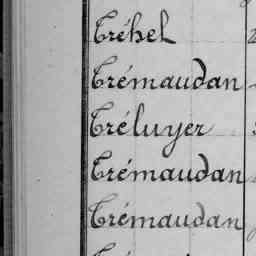 Tréhel
Trémaudan
Tréluyer
Trémaudan
Trémaudan